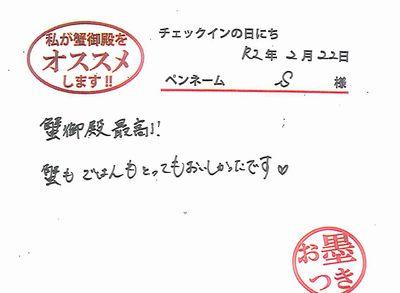 私が蟹御殿を
オススメ
します!!
チェックインの日にち
R2年2月22日
ペンネーム S 様
蟹御殿最高!!
蟹もごはんもとってもおいしかったです♡
お墨
つき